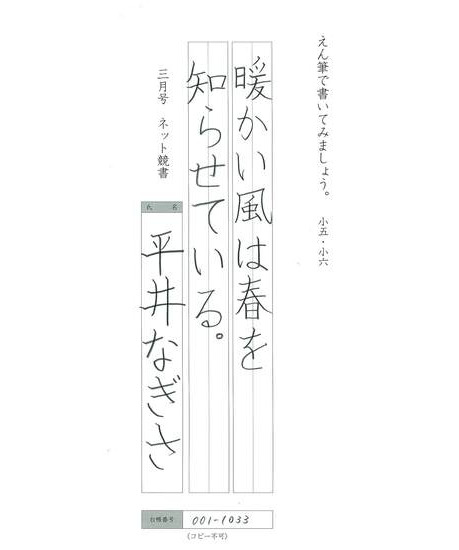 えん筆で書いてみましょう。 小五・小六
暖かい風は春を
知らせている。
三月号 ネット競書
氏名
平井なぎさ
台帳番号 001-1033
(コピー不可)